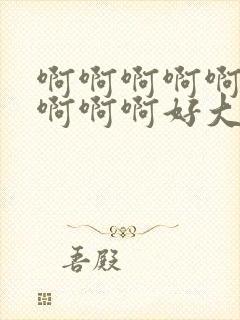 啊啊啊啊啊
啊啊啊好大
善殿